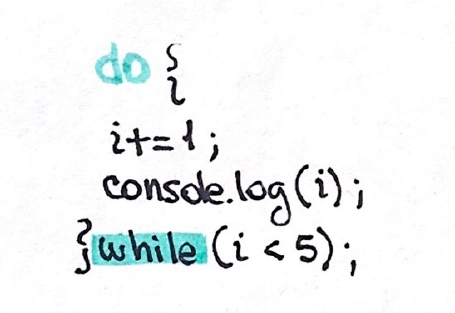 do {
i+=1;
console.log(i);
}while (i < 5);